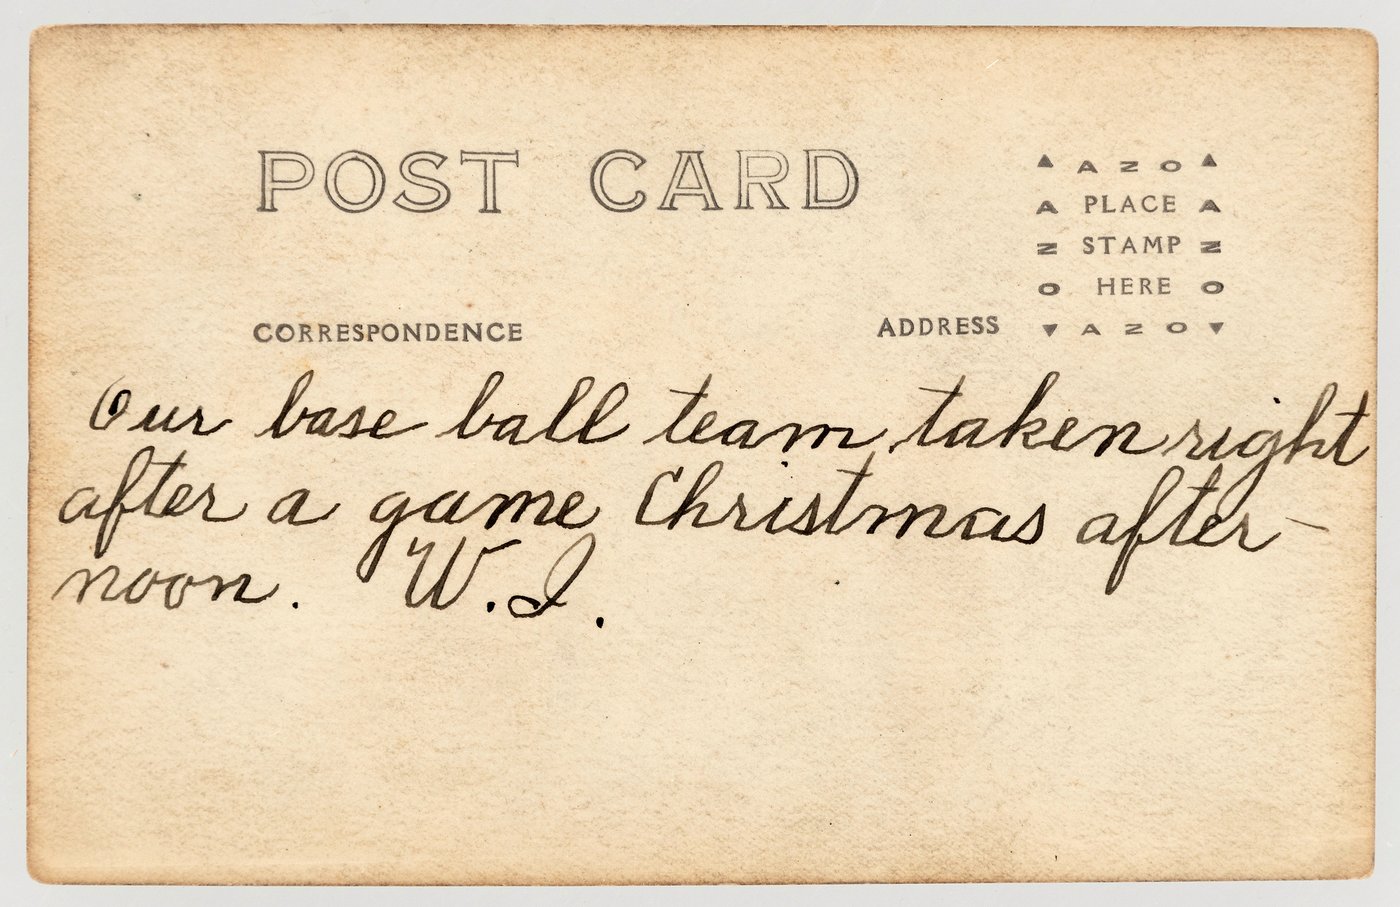 POST CARD
▲ AZO ▲
A PLACE A
N STAMP N
O HERE O
▼ AZO ▼
CORRESPONDENCE
ADDRESS
Our base ball team, taken right
after a game Christmas after-
noon. W. I.